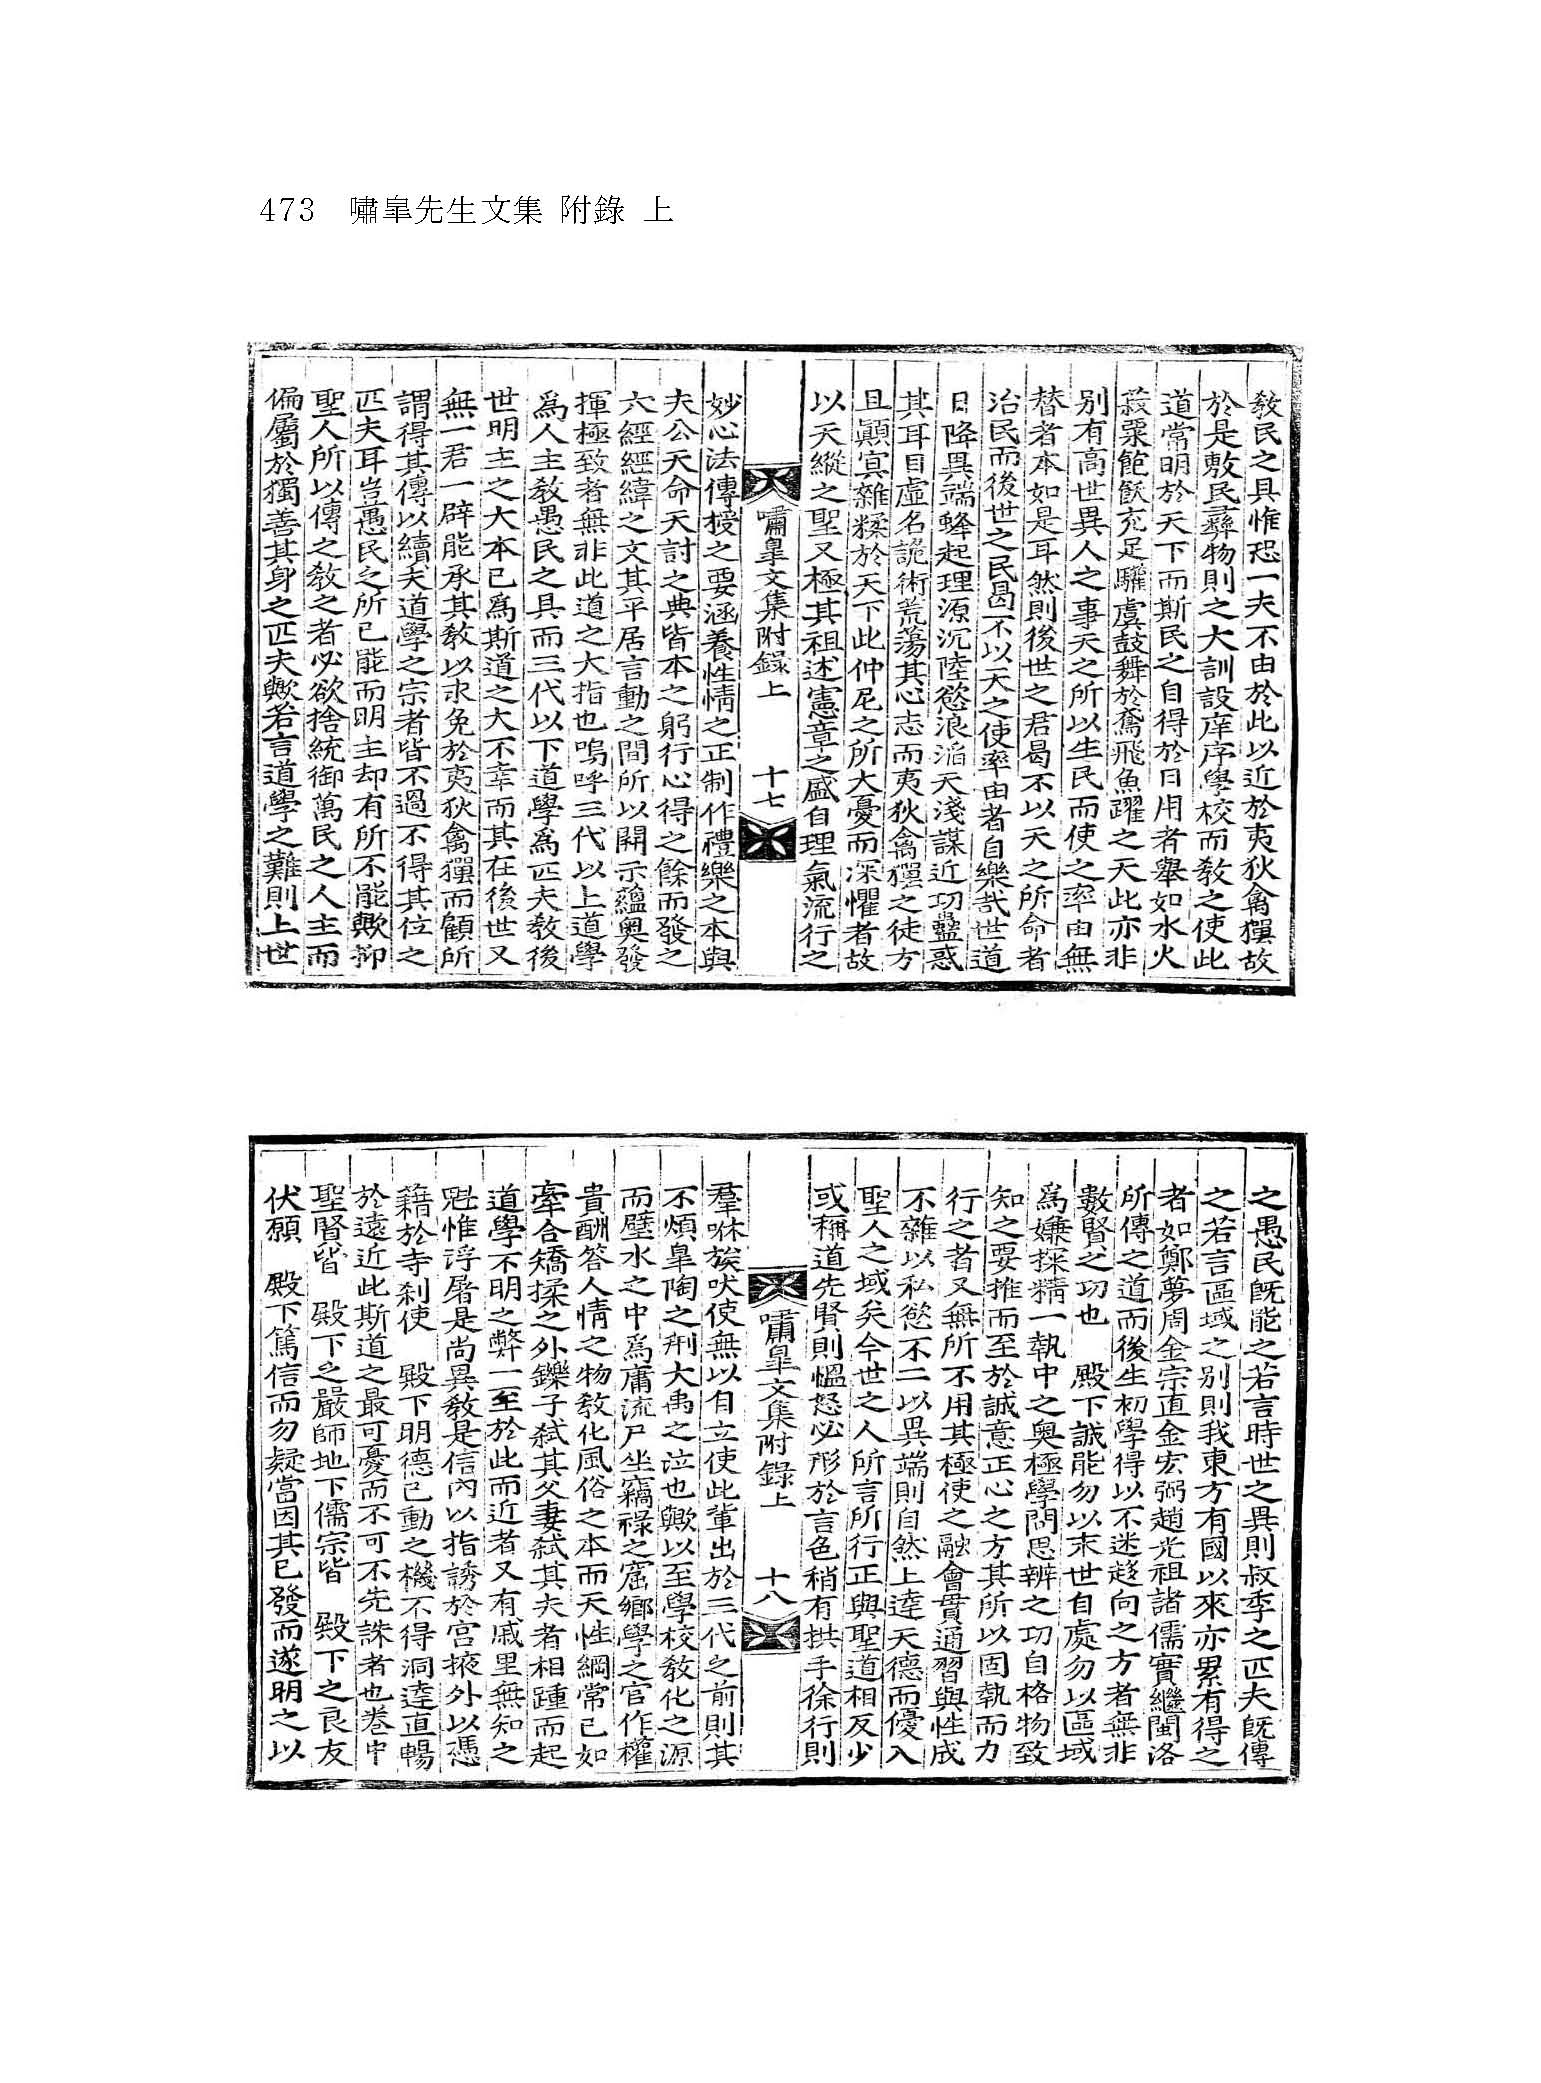 473 嘯皐先生文集 附錄 上
敎民之具惟恐一夫不由於此以近於夷狄禽獸故
於是敷民彞物則之大訓設庠序學校而敎之使此
道常明於天下而斯民之自得於日用者舉如水火
菽粟飽飫充足驩虞鼓舞於鳶飛魚躍之天此亦非
别有高世異人之事天之所以生民而使之率由無
替者本如是耳然則後世之君曷不以天之所命者
治民而後世之民曷不以天之使率由者自樂哉世道
日降異端蜂起理源沉陸慾浪滔天淺謀近功蠱惑
其耳目虛名詭術荒蕩其心志而夷狄禽獸之徒方
且顚冥雜糅於天下此仲尼之所大憂而深懼者故
以天縱之聖又極其祖述憲章之盛自理氣流行之
嘯皐文集附錄上 十七
妙心法傳授之要涵養性情之正制作禮樂之本與
夫公天命天討之典皆本之躬行心得之餘而發之
六經經緯之文其平居言動之間所以開示蘊奧發
揮極致者無非此道之大指也嗚呼三代以上道學
爲人主敎愚民之具而三代以下道學爲匹夫敎後
世明主之大本已爲斯道之大不幸而其在後世又
無一君一辟能承其敎以求免於夷狄禽獸而顧所
謂得其傳以續夫道學之宗者皆不過不得其位之
匹夫耳豈愚民之所已能而明主却有所不能歟抑
聖人所以傳之敎之者必欲捨統御萬民之人主而
偏屬於獨善其身之匹夫歟若言道學之難則上世
之愚民旣能之若言時世之異則叔季之匹夫旣傳
之若言區域之别則我東方有國以來亦累有得之
者如鄭夢周金宗直金宏弼趙光祖諸儒實繼閩洛
所傳之道而後生初學得以不迷趍向之方者無非
數賢之功也 殿下誠能勿以末世自處勿以區域
爲嫌探精一執中之奧極學問思辨之功自格物致
知之要推而至於誠意正心之方其所以固執而力
行之者又無所不用其極使之融會貫通習與性成
不雜以私慾不二以異端則自然上達天德而優入
聖人之域矣今世之人所言所行正與聖道相反少
或稱道先賢則慍怒必形於言色稍有拱手徐行則
嘯皐文集附錄上 十八
羣咻族吠使無以自立使此輩出於三代之前則其
不煩皐陶之刑大禹之泣也歟以至學校敎化之源
而璧水之中爲庸流尸坐竊祿之窟鄕學之官作權
貴酬答人情之物敎化風俗之本而天性綱常已如
牽合矯揉之外鑠子弑其父妻弑其夫者相踵而起
道學不明之弊一至於此而近者又有戚里無知之
䰟惟浮屠是尚異敎是信內以指誘於宮掖外以憑
籍於寺刹使 殿下明德已動之機不得洞達直暢
於遠近此斯道之最可憂而不可不先誅者也卷中
聖賢皆 殿下之嚴師地下儒宗皆 殿下之良友
伏願 殿下篤信而勿疑當因其已發而遂明之以